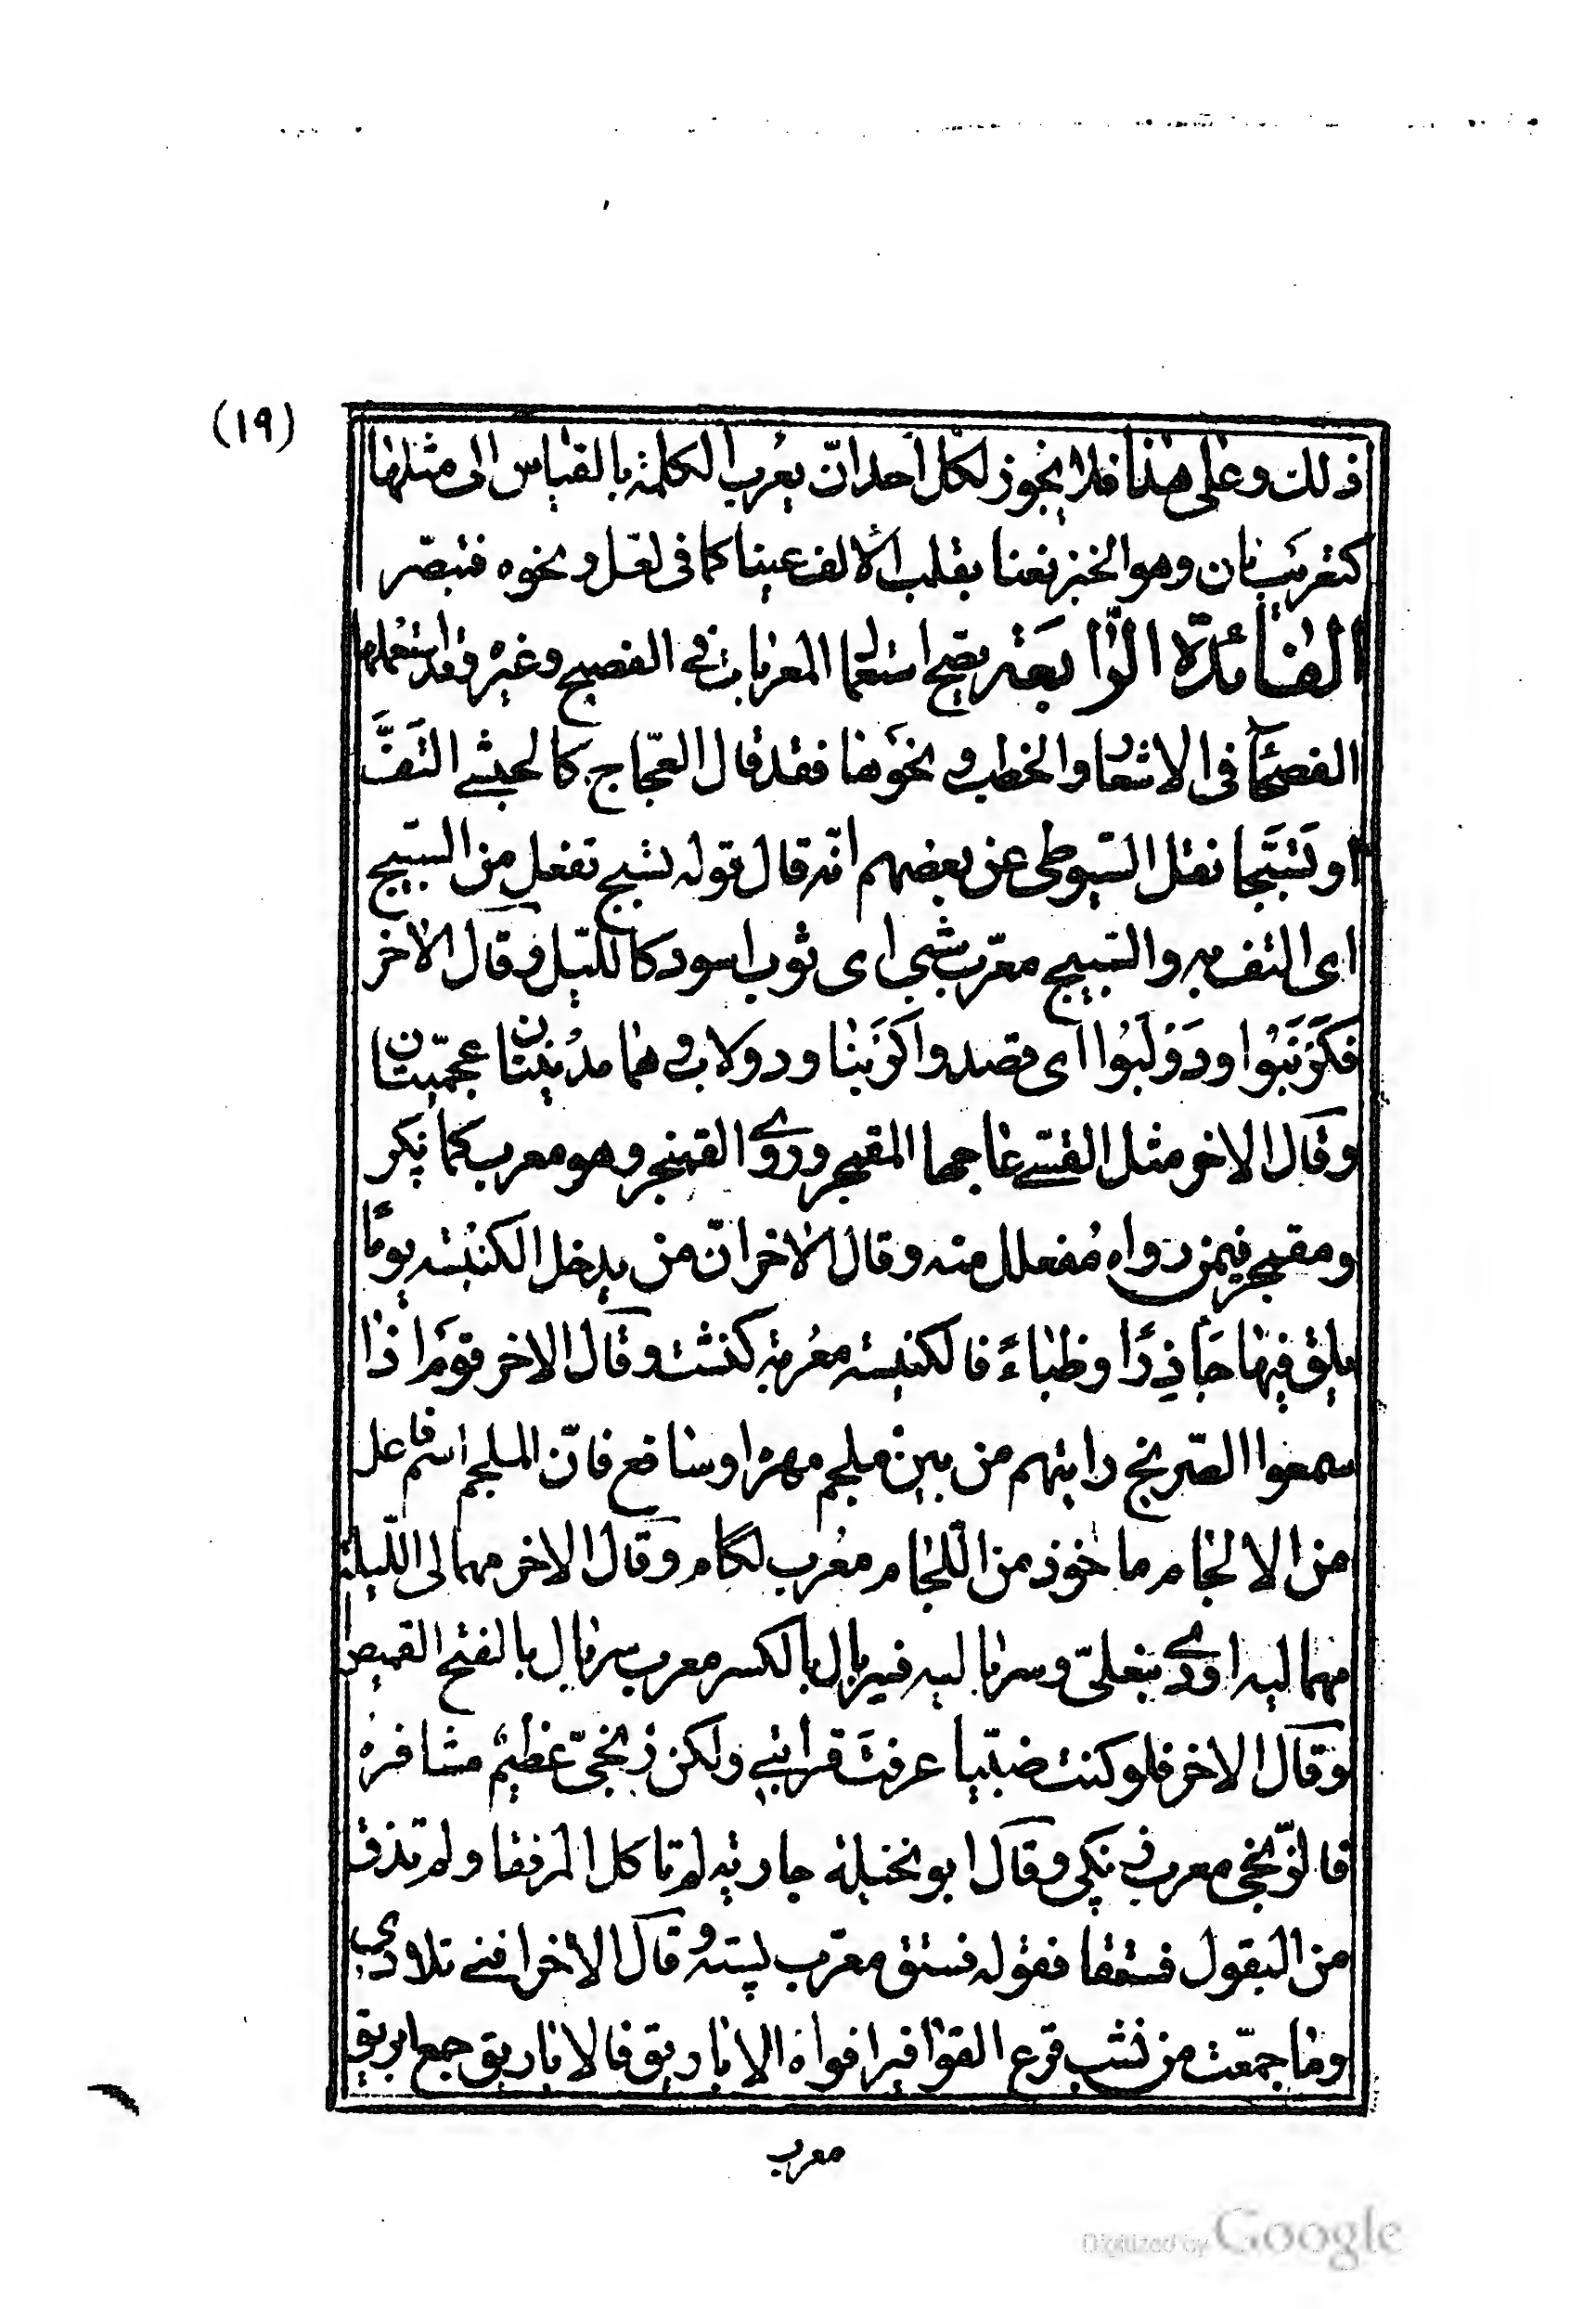 (١٩)
ذلك وعلى هذا فلا يجوز لكل أحد انّ يعرب الكلمة بالقياس الى مثلها
كتعريب نان وهو الخبز نعنا بقلب الألف عينا كما فى لعل ونحوه فتبصّر
الفائدة الرّابعة يصح استعمال المعربات فے الفصيح وغيره وقد استعملها
الفصحآء فى الاشعار والخطب ونحوها فقد قال العجّاج كالحبشے التَفَّ
او تَسَبَّجا نقل السّيوطى عن بعضهم انّه قال قوله تسبج تفعل من السبيج
اى التف به والسّبيج معرّب شبي اى ثوب اسود كاللّيل وقال الاخر
فَكَرْنَبُوا ودَوْلَبُوا اى قصدوا كَرْنبا ودولاب وهما مدُينتان عجميّتان
وقال الاخر مثل القسے عاجها المقمجر وروى القمنجر وهو معرب كمانكر
ومقمجر فيمن رواه مُفعلل منه وقال الاخر انّ من يدخل الكنيسه يومًا
يلق فيها جَاذِرًا وظباءً فالكنيسه معُربة كنشت وقال الاخر قومَ اذا
سمعوا الصّريخ رايتهم من بين ملجم مهره اوسافع فانّ الملجم اسم فاعل
من الالجام ماخوذ من اللّجام معُرب لگام وقال الاخر مهما لى اللّيلة
مهما ليه اودى بنعلىّ وسرباليه فسربال بالكسر معرب سربال بالفتح القميص
وقال الاخر فلو كنت ضبّيا عرفتَ قرابتے ولكن زنجىّ عظيمٌ مشافرهُ
فالزّنجى معرب زنكى وقال ابو نخيلة جارية لم تاكل المرققا ولم تذق
من البقول فستقا فقوله فستق معرّب پسته وقال الاخر افنے تلادى
وما جمعّت من نشب قرع القواقيز افواه الاباريق فالاباريق جمع ابريق
معرب
Digitized by Google